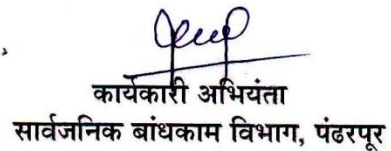 कार्यकारी अभियंता
सार्वजनिक बांधकाम विभाग, पंढरपूर